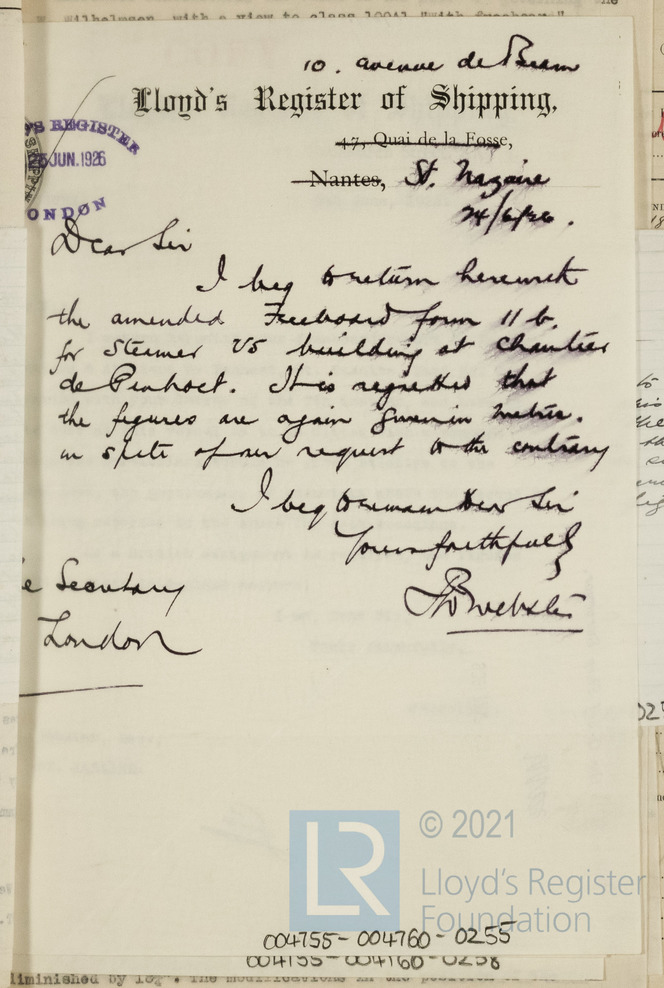 W. Wilhelmsen, with a view to class 100A1 "with freeboard"
10. avenue de Bearn
Lloyd's Register of Shipping,
47, Quai de la Fosse,
Nantes, St. Nazaire
24/6/26.
'S REGISTER
25 JUN. 1926
LONDON
Dear Sir
I beg to return herewith
the amended Freeboard form 11 b.
for Steamer V5 building at Chantier
de Penhoet. It is regretted that
the figures are again given in metres.
in spite of our request to the contrary
I beg to remain Dear Sir
Yours faithfully
Webster
e Secretary
London
LR
© 2021
Lloyd's Register
Foundation
004755-004760-0255
004755-004760-0258
diminished by The modifications in the position of